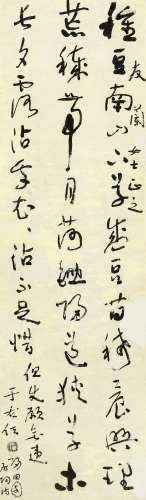 友蘭女士正之
種豆南山下草盛豆苗稀晨興理
荒穢帶月荷鋤歸道狹草木
長夕露沾我衣々沾不足惜但使願無違
于右任